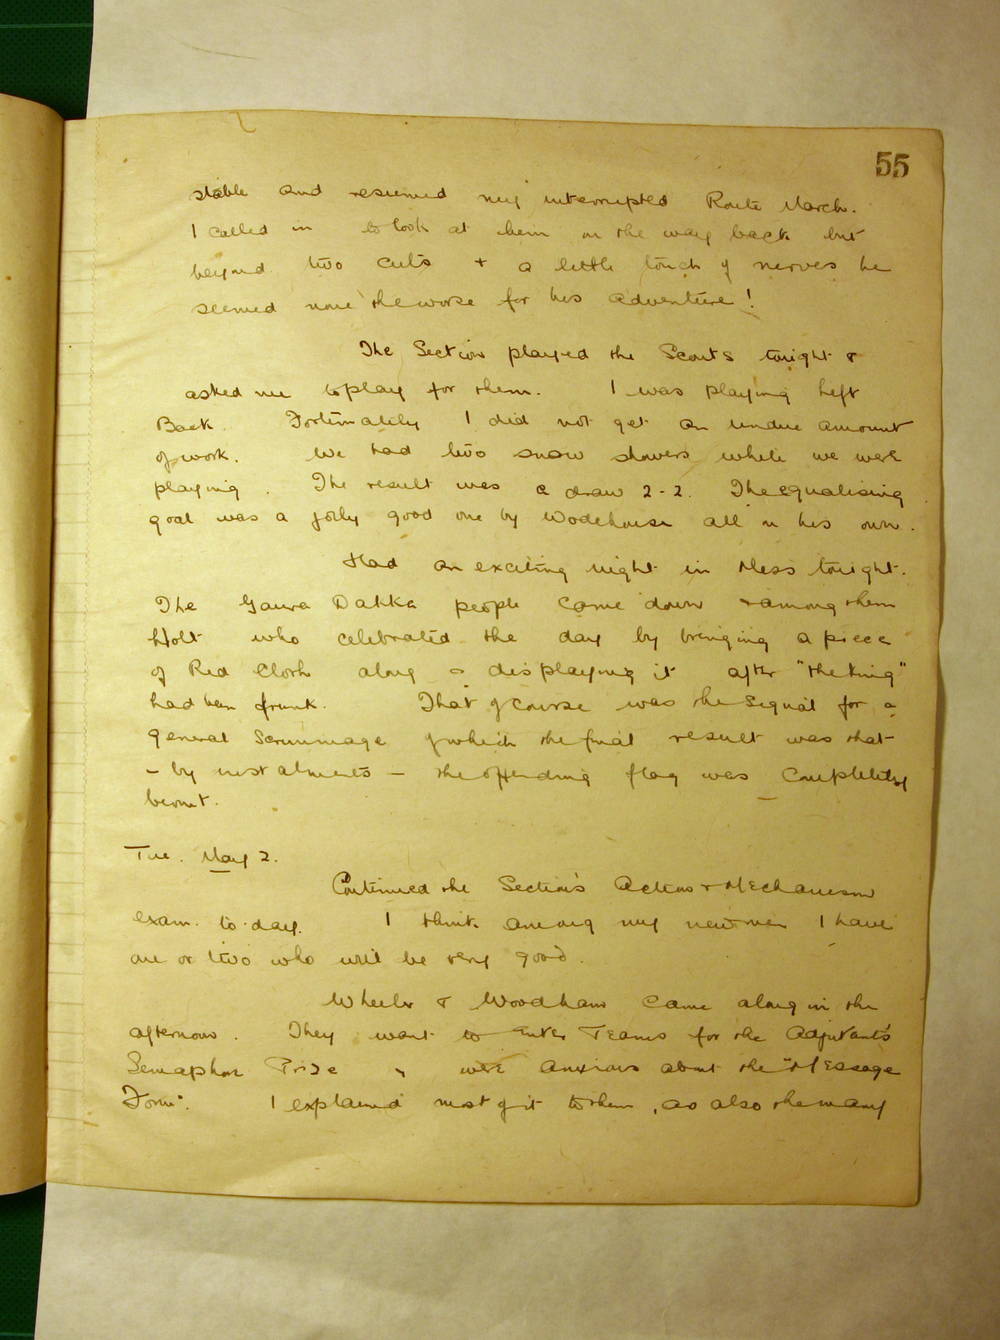 55
stable and resumed my interrupted Route March.
I called in to look at him on the way back but
beyond two cuts + a little touch of nerves he
seemed none the worse for his adventure!
The Section played the Scouts tonight &
asked me to play for them. I was playing Left
Back. Fortunately I did not get an undue amount
of work. We had two snow showers while we were
playing. The result was a draw 2-2. The equalising
goal was a jolly good one by Wodehouse all on his own.
Had an exciting night in Mess tonight.
The Gaura Dakka people came down & among them
Holt who celebrated the day by bringing a piece
of Red Cloth along & displaying it after "the King"
had been drunk. That of course was the signal for a
general Scrummage of which the final result was that
- by instalments - the offending flag was completely
burnt.
Tue. May 2.
Continued the Section's Action & Mechanism
exam. to-day. I think among my new men I have
one or two who will be very good.
Wheeler & Woodham came along in the
afternoon. They want to enter Teams for the Adjutant's
Semaphore Prize & were anxious about the "Message
Form". I explained most of it to them, as also the many